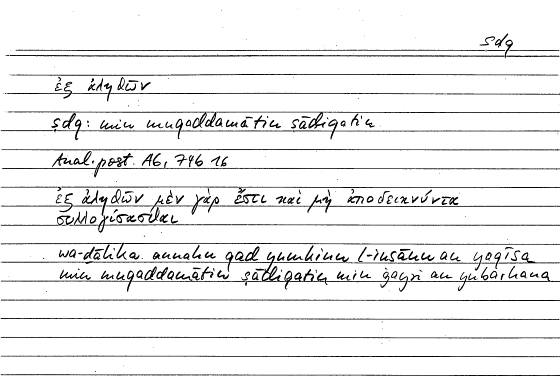 ṣdq
ἐξ ἀληθῶν
ṣdq: min muqaddamātin ṣādiqatin
Anal. post. A6, 74b 16
ἐξ ἀληθῶν μὲν γὰρ ἔστι καὶ μὴ ἀποδεικνύντα
συλλογίσασθαι
wa-ḏālika annahu qad yumkinu l-insāna an yaqīsa
min muqaddamātin ṣādiqatin min ġayri an yubarhana